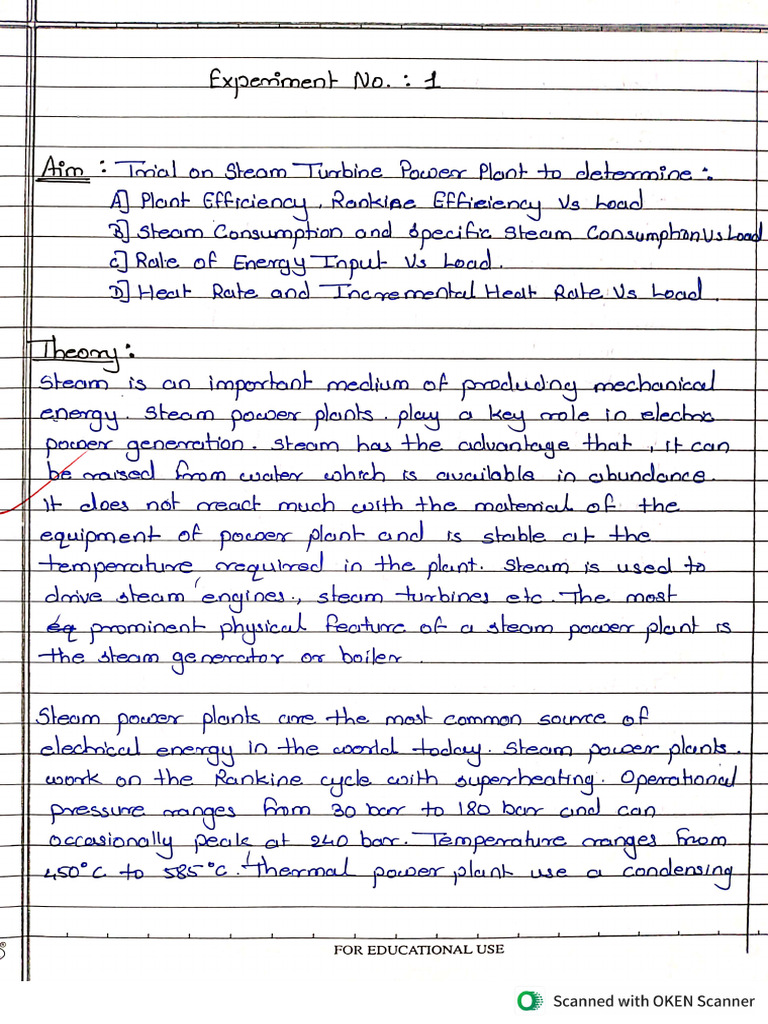 Experiment No. : 1
Aim : Trial on Steam Turbine Power Plant to determine :
A] Plant Efficiency, Rankine Efficiency Vs Load
B] Steam Consumption and Specific Steam Consumption Vs Load
C] Rate of Energy Input Vs Load.
D] Heat Rate and Incremental Heat Rate Vs Load.
Theory :
Steam is an important medium of producing mechanical
energy. Steam power plants. play a key role in electric
power generation. Steam has the advantage that, it can
be raised from water which is available in abundance.
It does not react much with the material of the
equipment of power plant and is stable at the
temperature required in the plant. Steam is used to
drive steam engines, steam turbines etc. The most
prominent physical feature of a steam power plant is
the steam generator or boiler.
Steam power plants are the most common source of
electrical energy in the world today. Steam power plants.
work on the Rankine cycle with superheating. Operational
pressure ranges from 30 bar to 180 bar and can
occasionally peak at 240 bar. Temperature ranges from
450°C to 585°C. thermal power plant use a condensing
FOR EDUCATIONAL USE
Scanned with OKEN Scanner